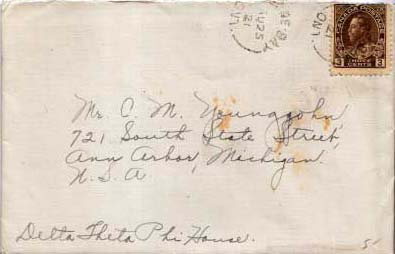 CANADA POSTAGE
3 THREE CENTS 3
Mr. C. M. Youngsohn
721 South State Street,
Ann Arbor, Michigan.
U.S.A.
Delta Theta Phi House.